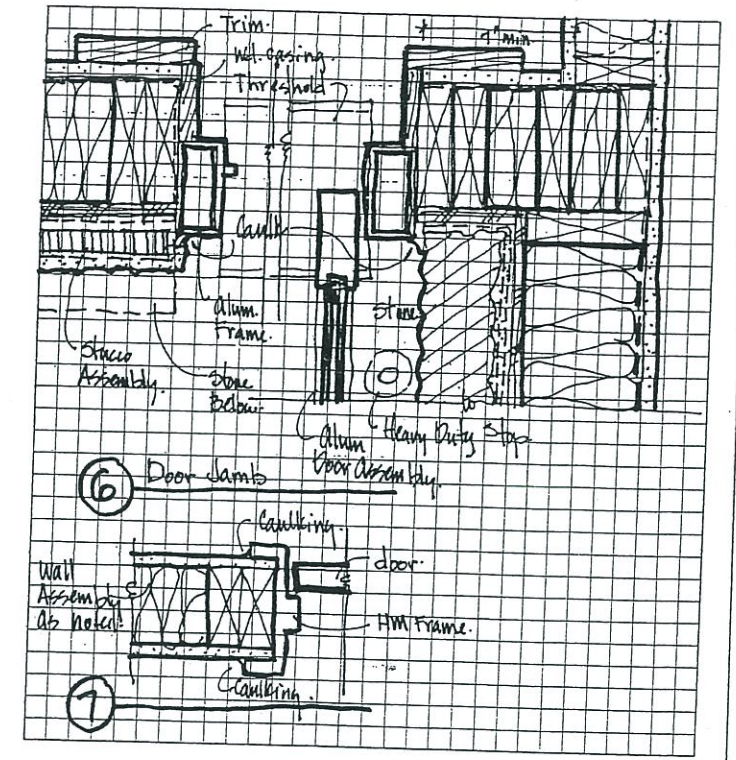 Trim.
Wd. Casing.
Threshold
7" min
Caulk
Alum.
Frame.
Stone
Stucco
Assembly.
Stone
Below.
Alum
Door Assembly.
Heavy Duty Stop.
6 Door Jamb
Caulking.
door.
Wall
Assembly
as noted.
HM Frame.
Caulking.
7